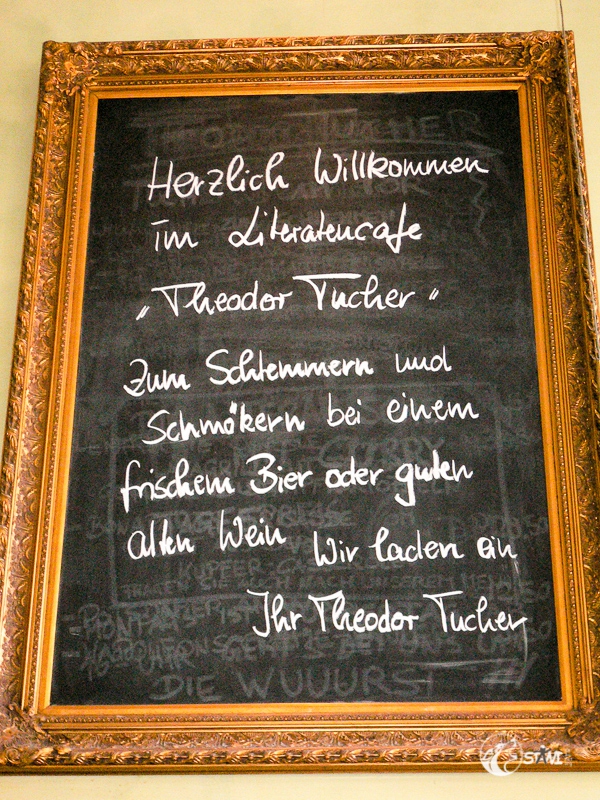 Herzlich Willkommen
im Literatencafe
„Theodor Tucher"
Zum Schlemmern und
Schmökern bei einem
frischem Bier oder guten
alten Wein Wir laden ein
Ihr Theodor Tucher
DIE WUUURST